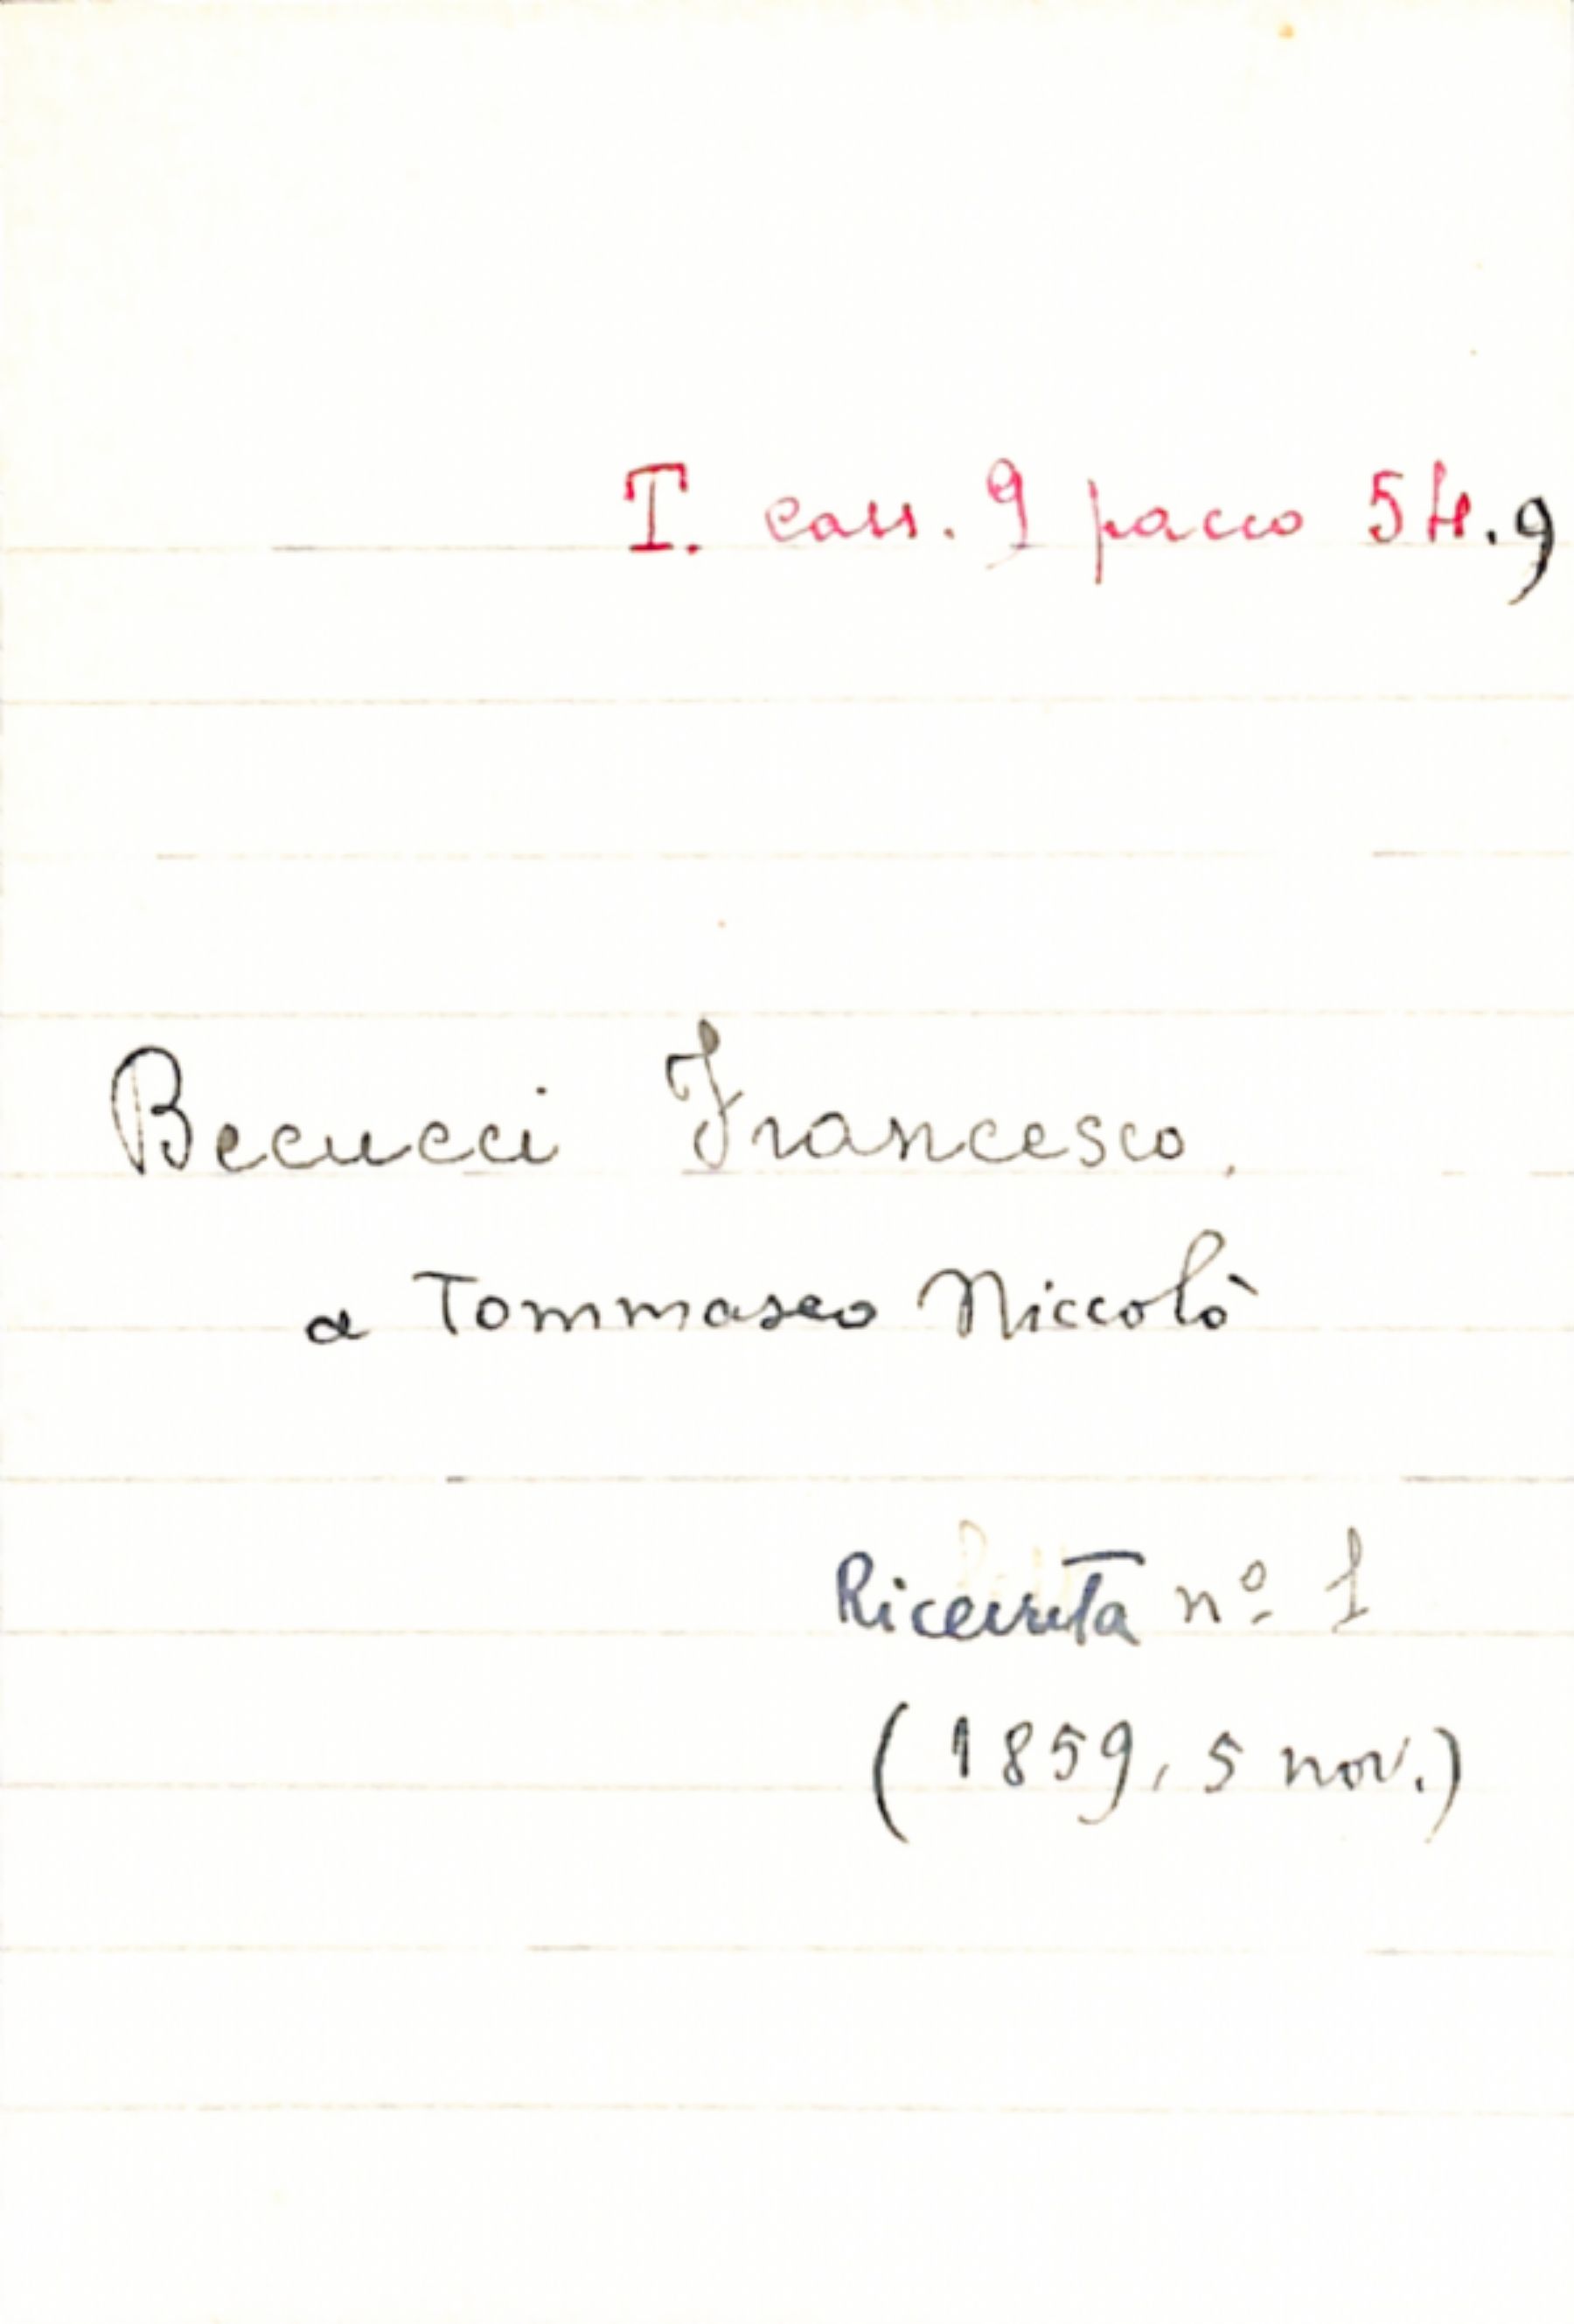 T. cass. 9 pacco 54.9
Becucci Francesco.
a Tommaseo Niccolò
Ricevuta nº 1
(1859, 5 nov.)